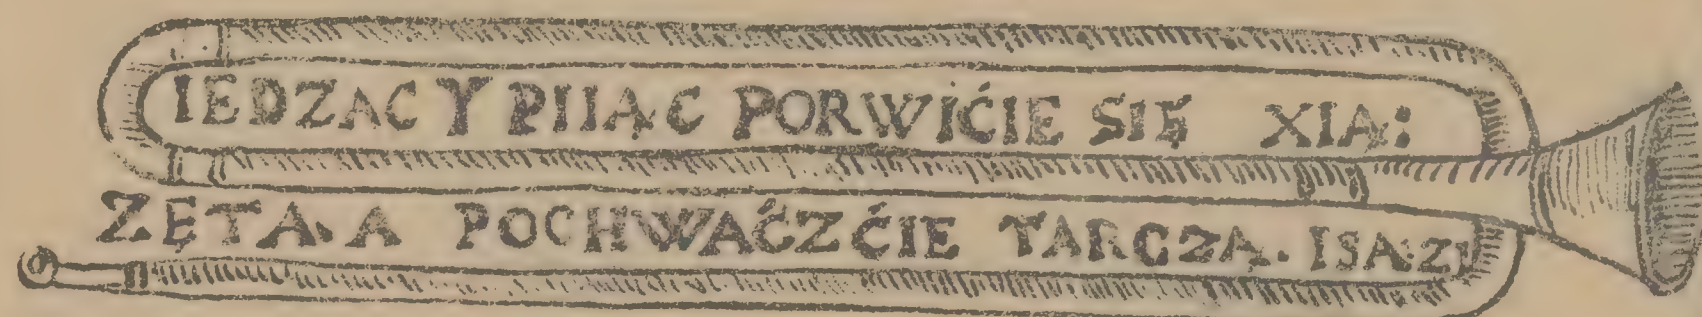 IEDZĄC Y PIIĄC PORWIĆIE SIĘ XIĄ:
ZĘTA. A POCHWAĆZĆIE TARCZĄ. ISA:21